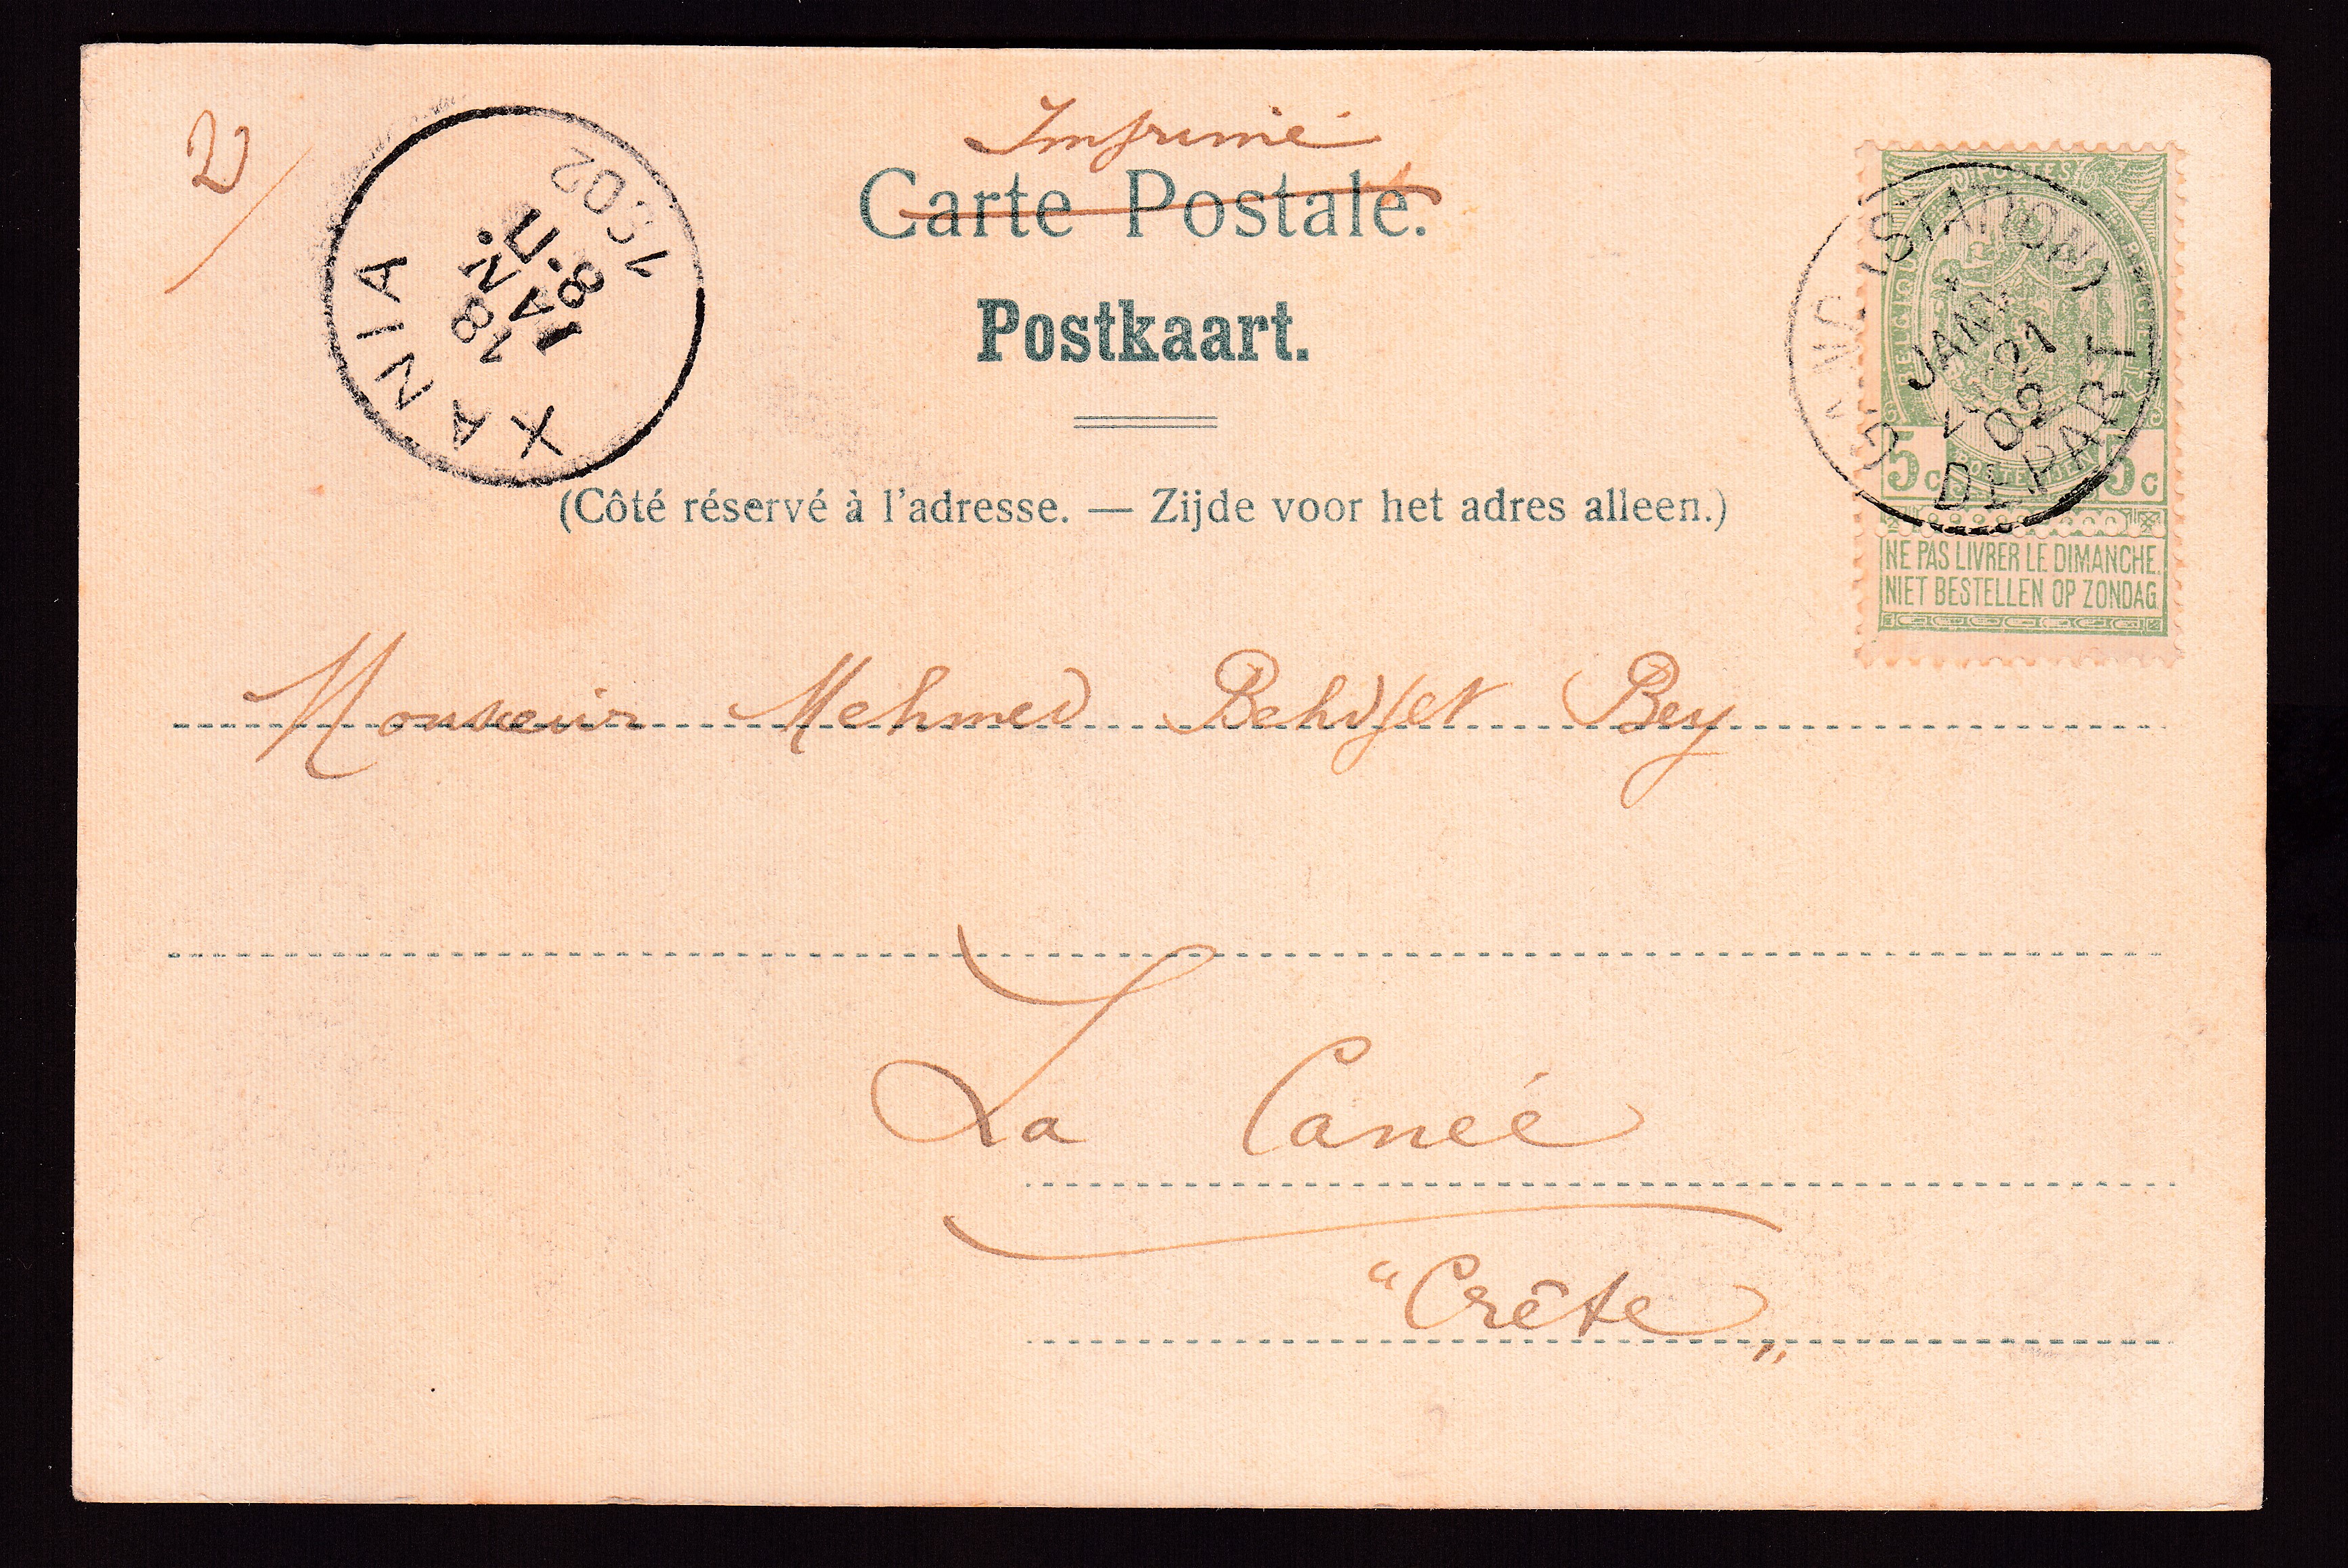 2/
Imprimé
Carte Postale.
Postkaart.
(Côté réservé à l'adresse. — Zijde voor het adres alleen.)
XANIA
18
ΙΑΝ
18
Π.
1902
GAND (STATION)
JANV
21
02
DEPART
POSTES
BELGIQUE
BELGIE
POSTERIJEN
5c 5c
NE PAS LIVRER LE DIMANCHE.
NIET BESTELLEN OP ZONDAG.
Monsieur Mehmed Behdjet Bey
La Canée
"Crête„